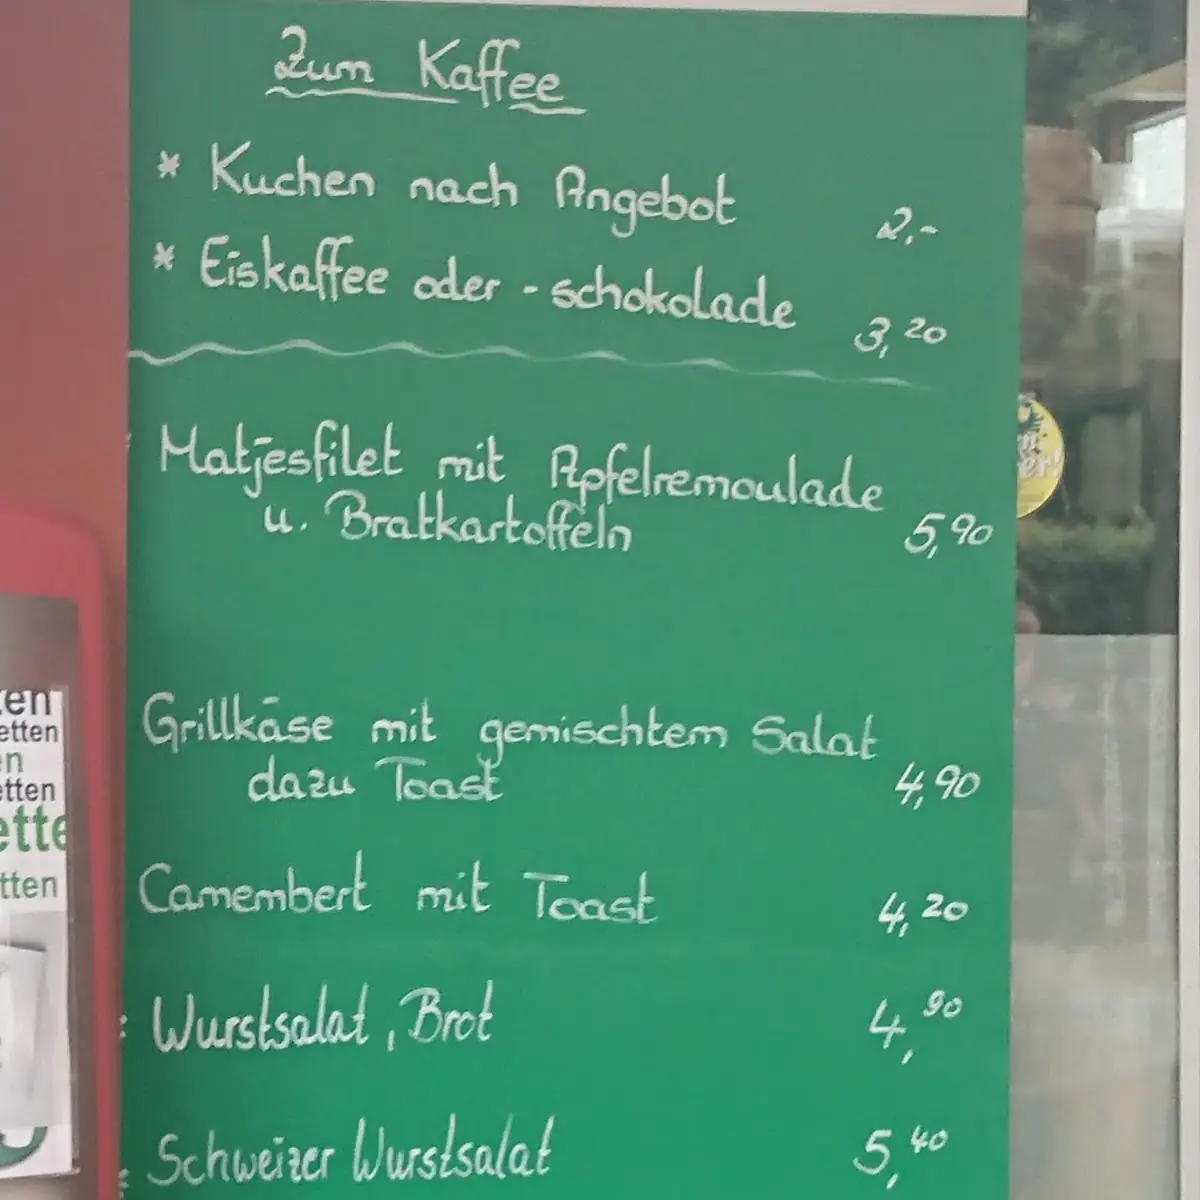 Zum Kaffee
* Kuchen nach Angebot 2.-
* Eiskaffee oder -schokolade 3,20
Matjesfilet mit Apfelremoulade
u. Bratkartoffeln 5,90
Grillkäse mit gemischtem Salat
dazu Toast 4,90
Camembert mit Toast 4,20
Wurstsalat, Brot 4,90
Schweizer Wurstsalat 5,40
etten
etten
tten